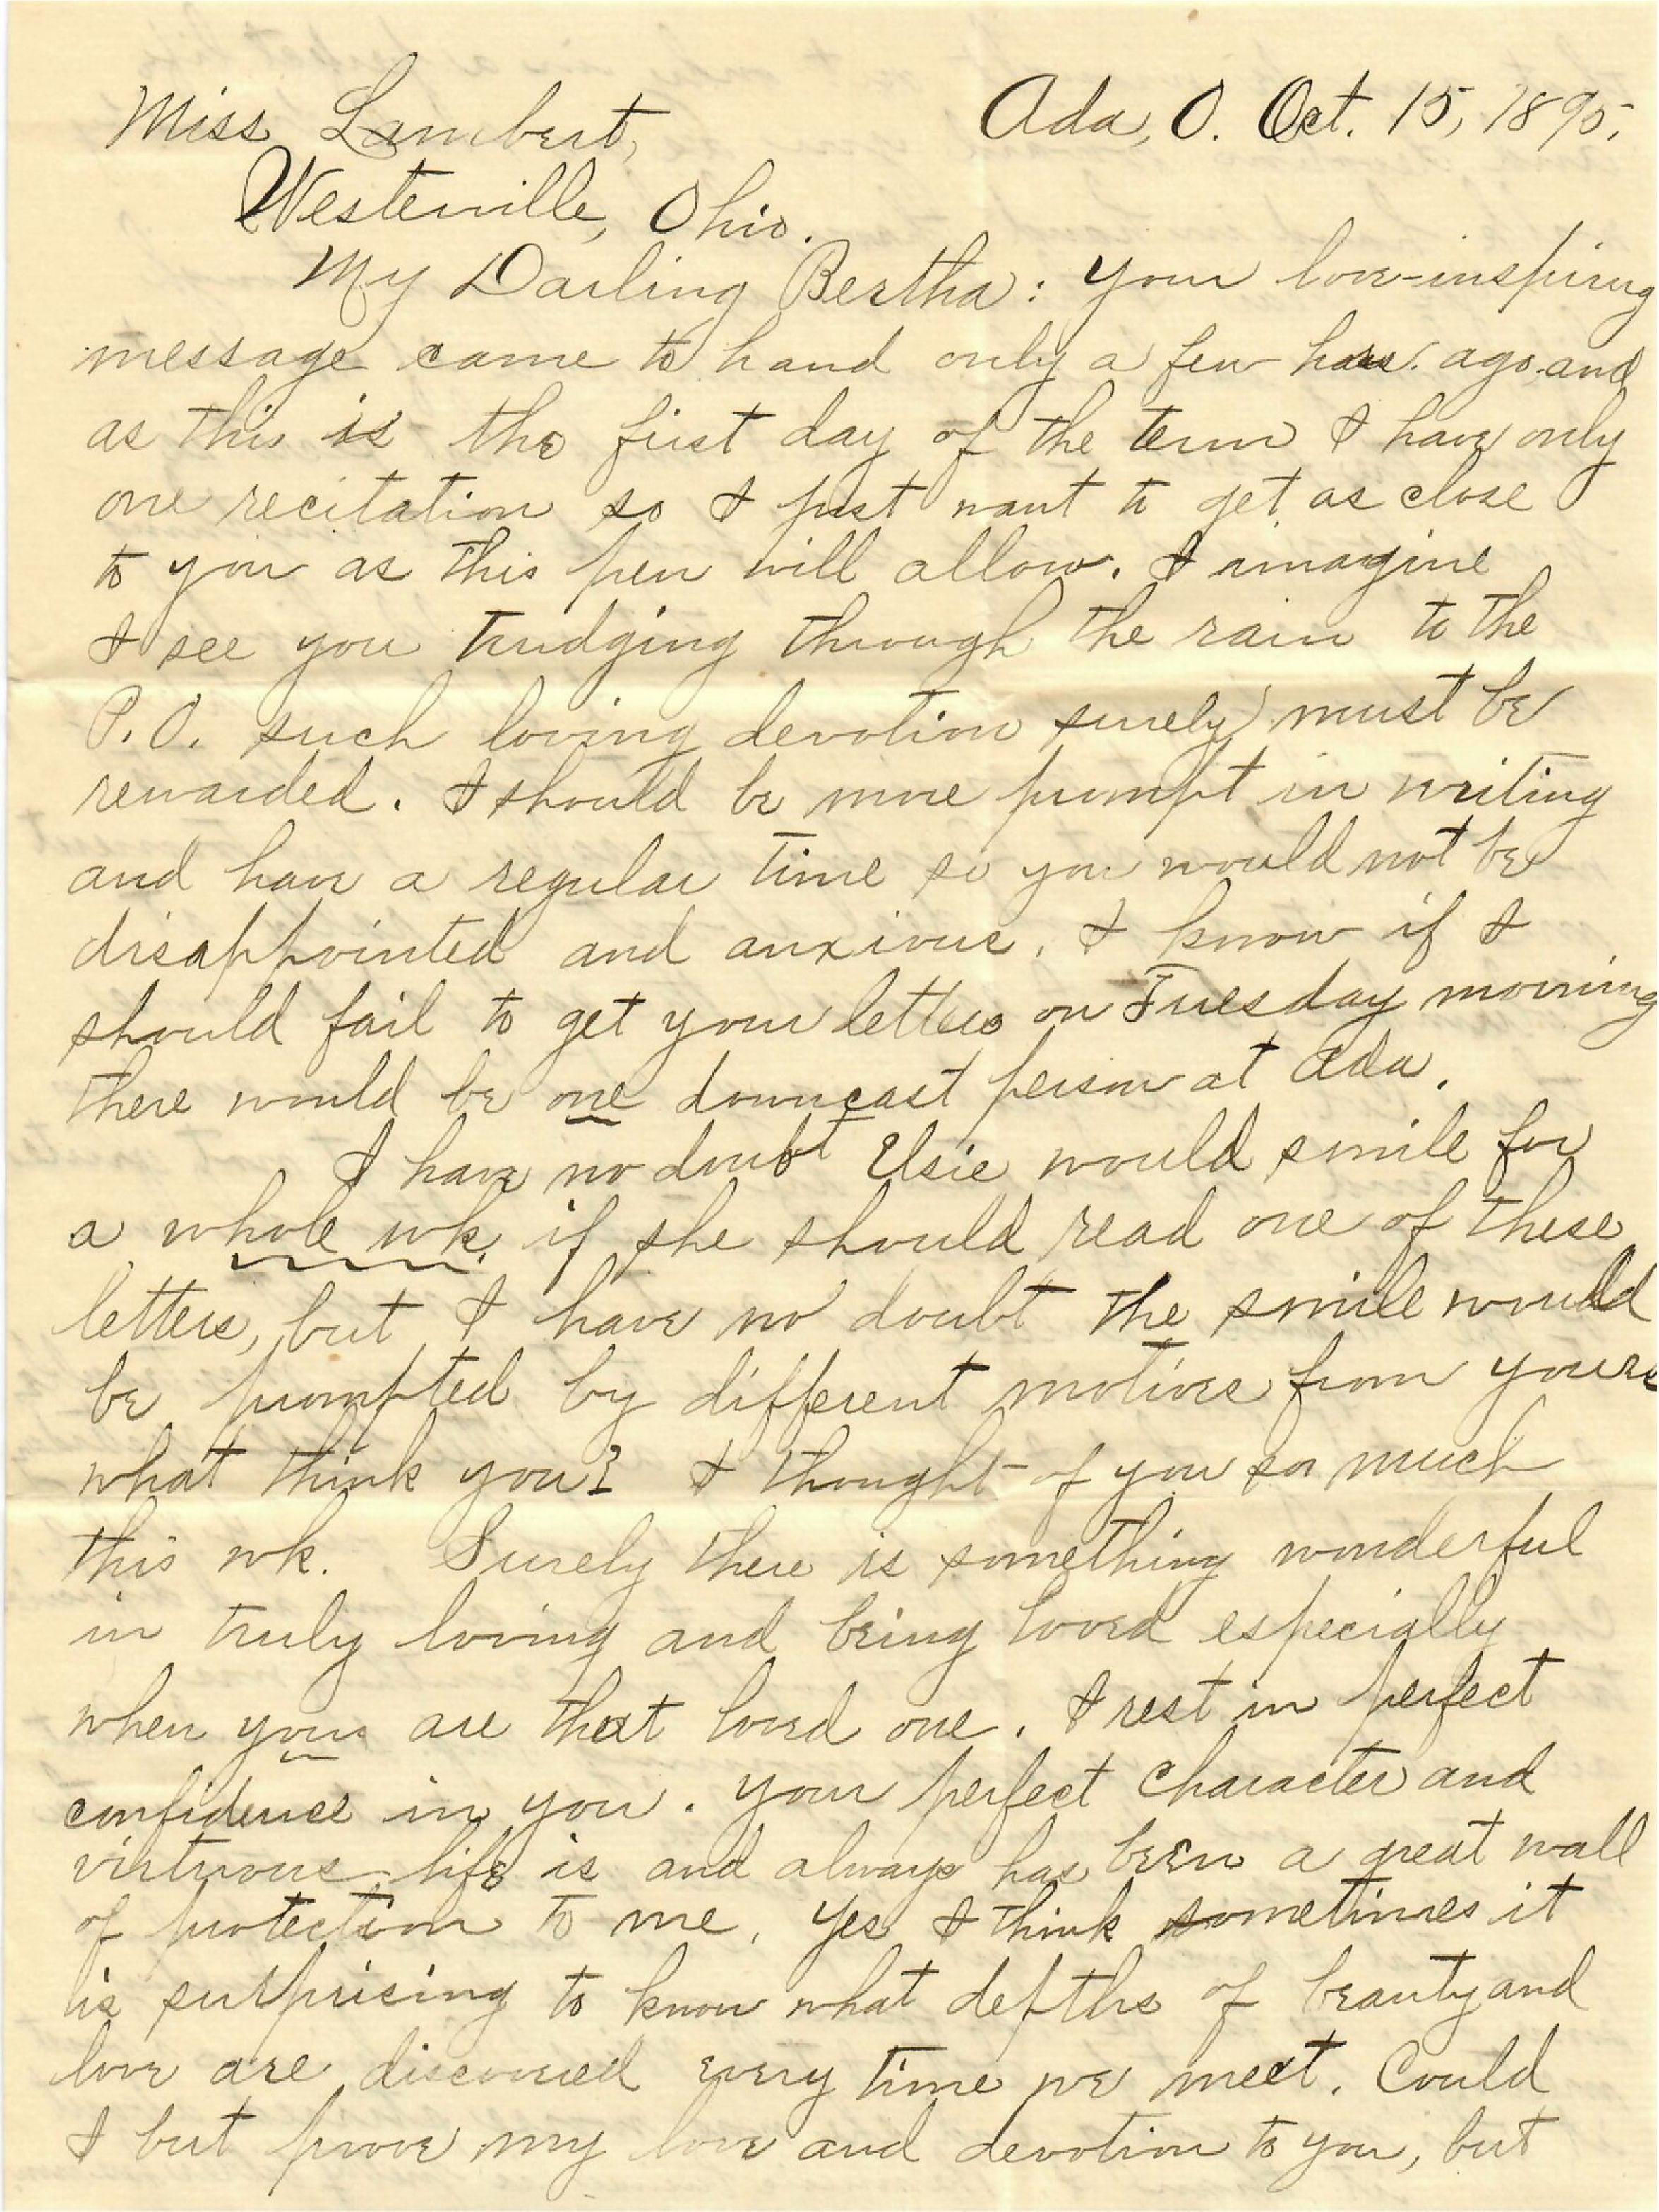 Miss Lambert, Ada, O. Oct. 15, 1895.
Westerville, Ohio.
My Darling Bertha: Your love-inspiring
message came to hand only a few hours. ago. and
as this is the first day of the term I have only
one recitation so I just want to get as close
to you as this pen will allow. I imagine
I see you trudging through the rain to the
P.O. such loving devotion surely must be
rewarded. I should be more prompt in writing
and have a regular time so you would not be
disappointed and anxious. I know if I
should fail to get your letters on Tuesday morning
there would be one downcast person at Ada.
I have no doubt Elsie would smile for
a whole wk. if she should read one of these
letters, but I have no doubt the smile would
be prompted by different motives from yours
what think you? I thought of you so much
this wk. Surely there is something wonderful
in truly loving and being loved especially
when you are that loved one. I rest in perfect
confidence in you. Your perfect character and
virtuous life is and always has been a great wall
of protection to me. Yes I think sometimes it
is surprising to know what depths of beauty and
love are discovered every time we meet. Could
I but prove my love and devotion to you, but